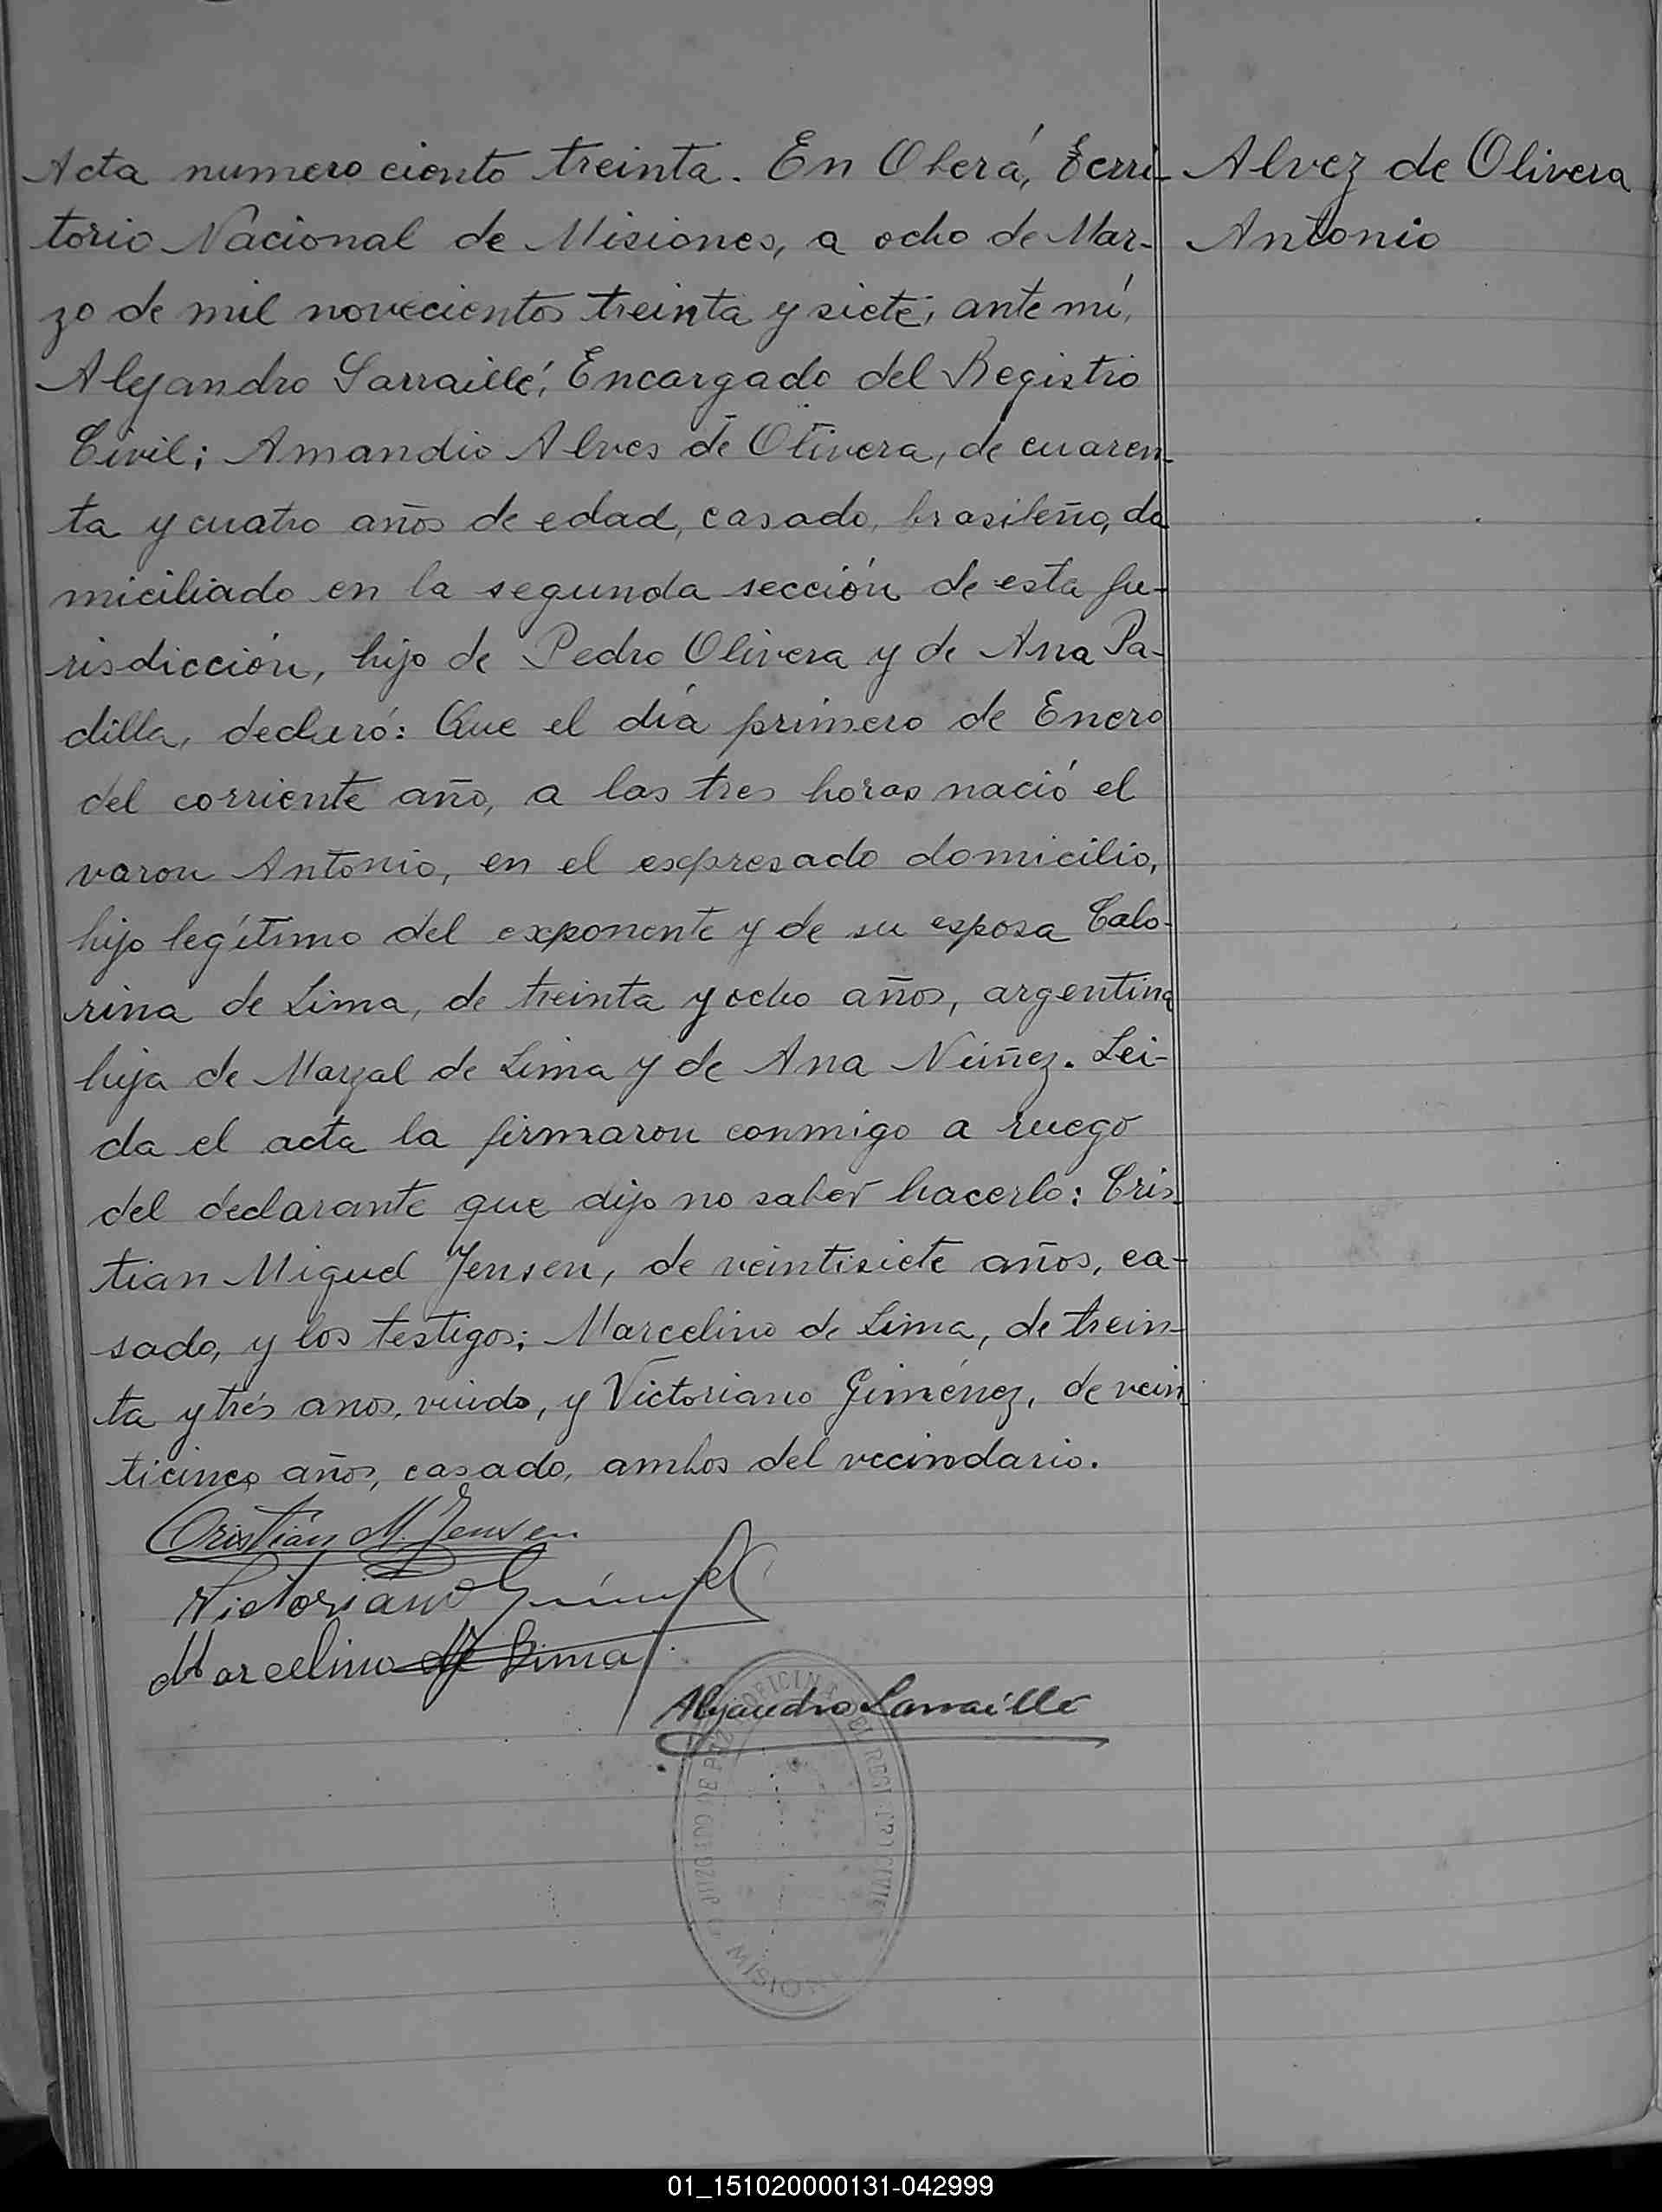 Acta numero ciento treinta. En Oberá, Terri-
torio Nacional de Misiones, a ocho de Mar-
zo de mil novecientos treinta y siete; ante mí,
Alejandro Sarraillé, Encargado del Registro
Civil; Amandio Alves de Olivera, de cuaren-
ta y cuatro años de edad, casado, brasileño, do
miciliado en la segunda sección de esta ju-
risdicción, hijo de Pedro Olivera y de Ana Pa-
dilla, declaró: Que el día primero de Enero
del corriente año, a las tres horas nació el
varon Antonio, en el expresado domicilio,
hijo legítimo del exponente y de su esposa Calo-
rina de Lima, de treinta y ocho años, argentina
hija de Marzal de Lima y de Ana Núñez. Lei-
da el acta la firmaron conmigo a ruego
del declarante que dijo no saber hacerlo: Cris-
tian Miguel Jensen, de veintisiete años, ca-
sado, y los testigos; Marcelino de Lima, de trein-
ta y trés anos, viudo, y Victoriano Giménez, de vein
ticinco años, casado, ambos del vecindario.
Alvez de Olivera
Antonio
Cristian M. Jensen
Victoriano Giménez
Marcelino de Lima
Alejandro Sarraillé
OFICINA DEL REGISTRO CIVIL
JUZGADO DE PAZ
MISIONES
01_151020000131-042999